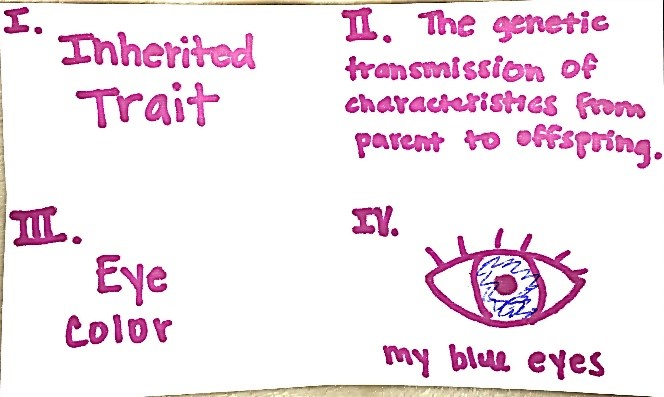 I.
Inherited
Trait
II. The genetic
transmission of
characteristics from
parent to offspring.
III.
Eye
Color
IV.
my blue eyes